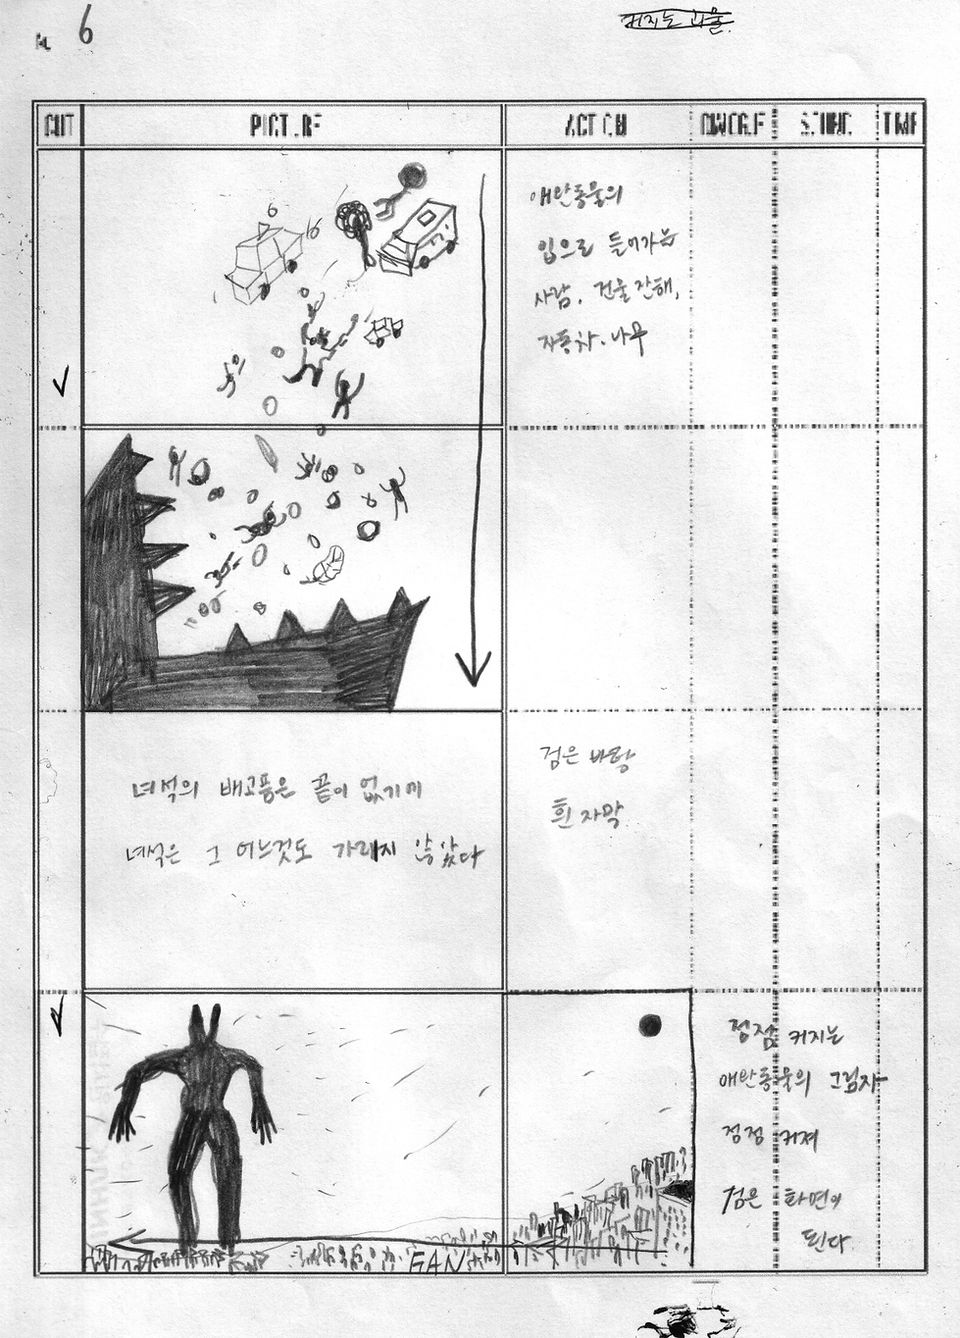 6
커지는 괴물.
CUT
PICTURE
ACTION
DIALOGUE
SOUND
TIME
애완동물의
입으로 들어가는
사람. 건물 잔해.
자동차. 나무
녀석의 배고픔은 끝이 없기에
녀석은 그 어느것도 가리지 않았다
검은 바탕
흰 자막
점점 커지는
애완동물의 그림자
점점 커져
검은 화면이
된다
FAN